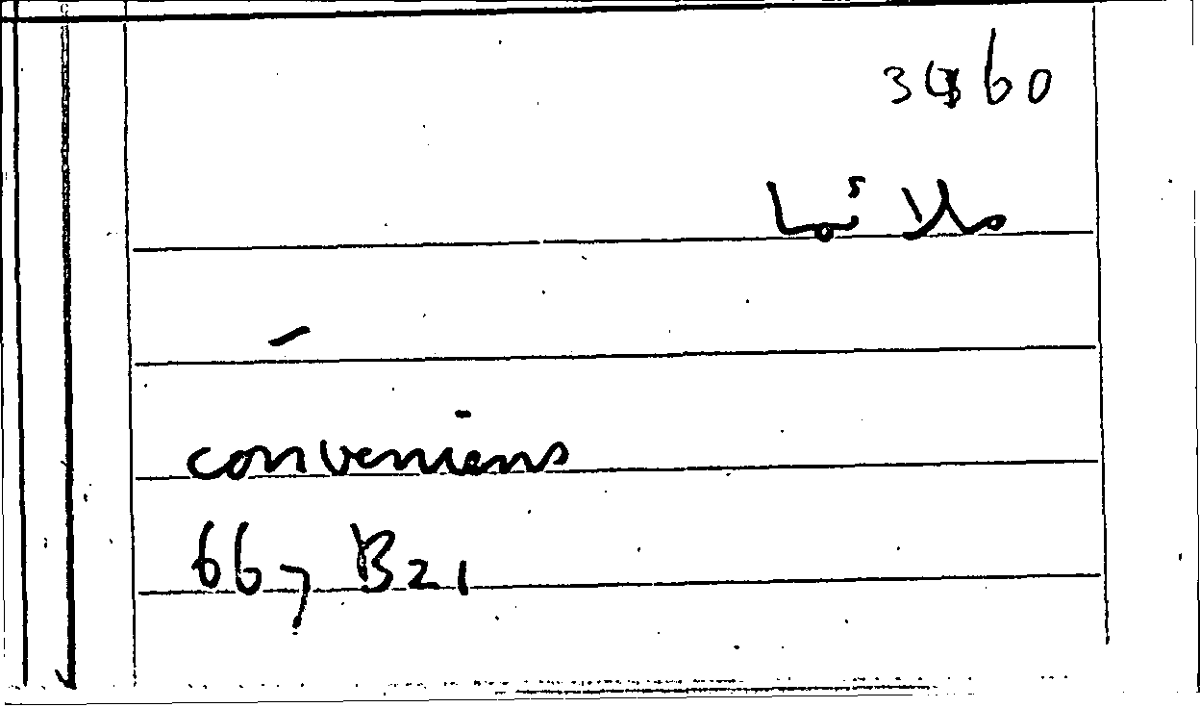 ملائما
–
conveniens
66, B21